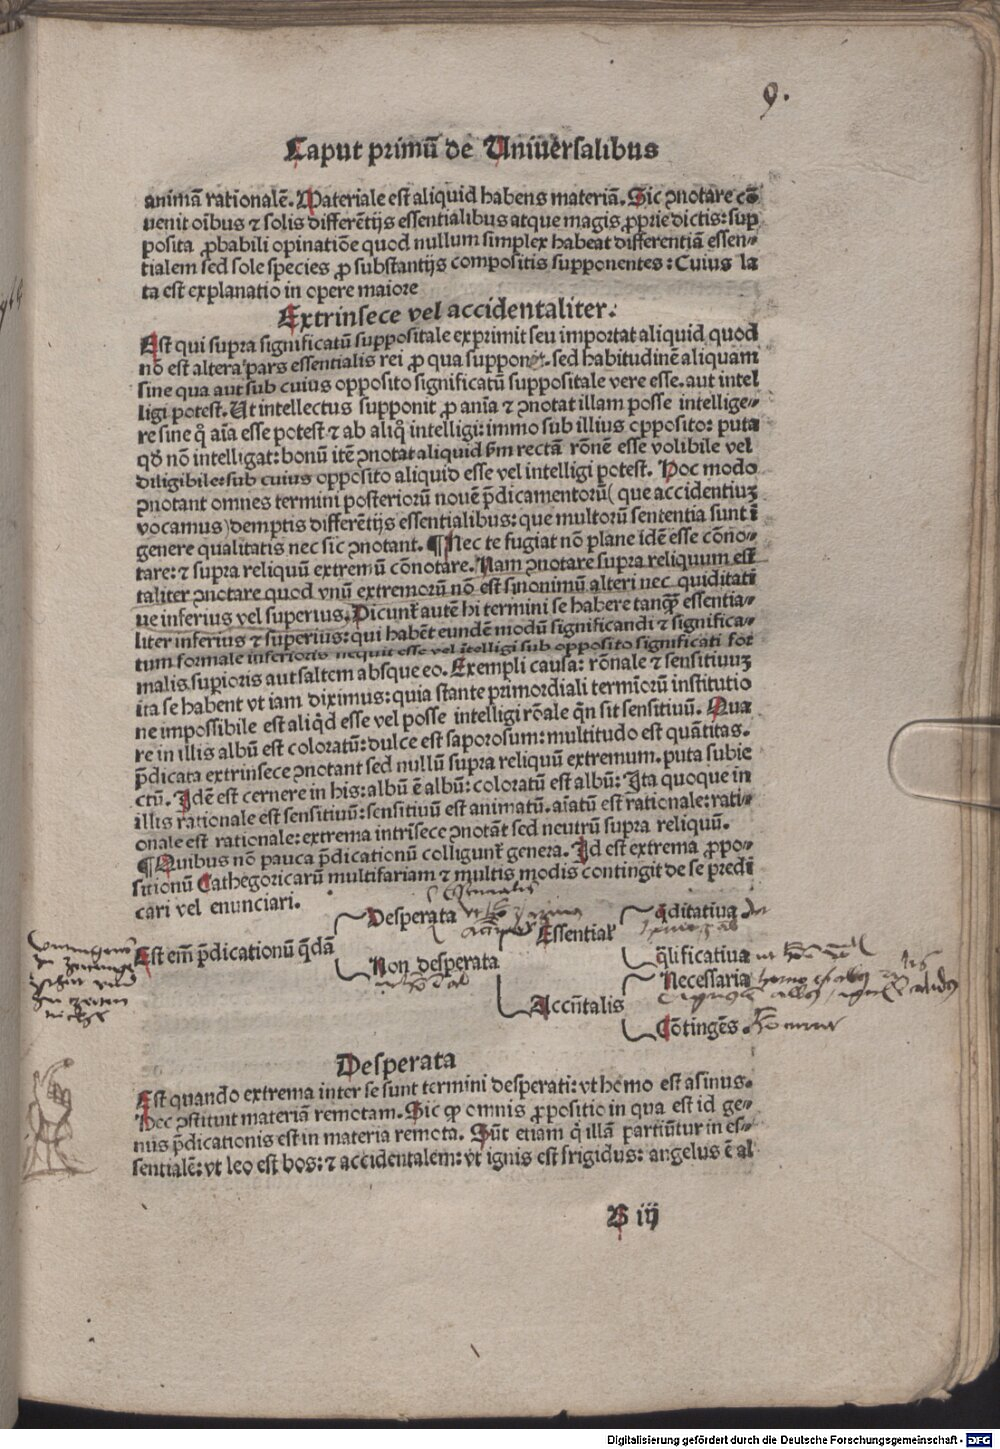 9.
Caput primū de Uniuersalibus
animā rationalē. Materiale est aliquid habens materiā. Sic ꝯnotare cō
uenit oībus ⁊ solis differētijs essentialibus atque magis ꝓprie dictis: sup
posita ꝓbabili opinatiōe quod nullum simplex habeat differentiā essen⸗
tialem sed sole species ꝓ substantijs compositis supponentes: Cuius la
ta est explanatio in opere maiore
Extrinsece vel accidentaliter.
Est qui supra significatū suppositale exprimit seu importat aliquid quod
nō est altera pars essentialis rei ꝓ qua supponit. sed habitudinē aliquam
sine qua aut sub cuius opposito significatū suppositale vere esse. aut intel
ligi potest. Ut intellectus supponit ꝓ anīa ⁊ ꝯnotat illam posse intellige⸗
re sine q̄ aīa esse potest ⁊ ab aliq̄ intelligi: immo sub illius opposito: puta
qđ nō intelligat: bonū itē ꝯnotat aliquid ẜm rectā rōnē esse volibile vel
diligibile: sub cuius opposito aliquid esse vel intelligi potest. Hoc modo
ꝯnotant omnes termini posteriorū nouē p̄dicamentorū (que accidentiuꝫ
vocamus) demptis differētijs essentialibus: que multorū sententia sunt ī
genere qualitatis nec sic ꝯnotant. ¶ Nec te fugiat nō plane idē esse cōno⸗
tare: ⁊ supra reliquū extremū cōnotare. Nam ꝯnotare supra reliquum est
taliter ꝯnotare quod vnū extremorū nō est sinonimū alteri nec quiditati
ue inferius vel superius. Dicunt̄ autē hi termini se habere tanq̄ꝫ essentia⸗
liter inferius ⁊ superius: qui habēt eundē modū significandi ⁊ significa⸗
tum formale inferioris nequit esse vel ītelligi sub opposito significati for
malis superioris aut saltem absque eo. Exempli causa: rōnale ⁊ sensitiuuꝫ
ita se habent vt iam diximus: quia stante primordiali termīorū institutio
ne impossibile est aliq̄d esse vel posse intelligi rōale q̄n sit sensitiuū. Qua
re in illis albū est coloratū: dulce est saporosum: multitudo est quātitas.
p̄dicata extrinsece ꝯnotant sed nullū supra reliquū extremum. puta subie
ctū. Idē est cernere in his: albū ē albū: coloratū est albū: Ita quoque in
illis rationale est sensitiuū: sensitiuū est animatū. aīatū est rationale: rati⸗
onale est rationale: extrema intrīsece ꝯnotāt sed neutrū supra reliquū.
¶ Quibus nō pauca p̄dicationū colligunt̄ genera. Id est extrema ꝓpo⸗
sitionū Cathegoricarū multifariam ⁊ multis modis contingit de se predi
cari vel enunciari.
Est em̄ p̄dicationū q̄dā
Desperata
Non desperata
Essentialꝭ
q̄ditatiua
q̄lificatiua
Accn̄talis
Necessaria
Cōtingēs
Desperata
Est quando extrema inter se sunt termini desperati: vt homo est asinus.
Hec ꝯstituit materiā remotam. Sic ꝙ omnis ꝓpositio in qua est id ge⸗
nus p̄dicationis est in materia remota. Sūt etiam q̄ illā partiūtur in es⸗
sentialē: vt leo est bos: ⁊ accidentalem: vt ignis est frigidus: angelus ē al
B iij
Digitalisierung gefördert durch die Deutsche Forschungsgemeinschaft - DFG